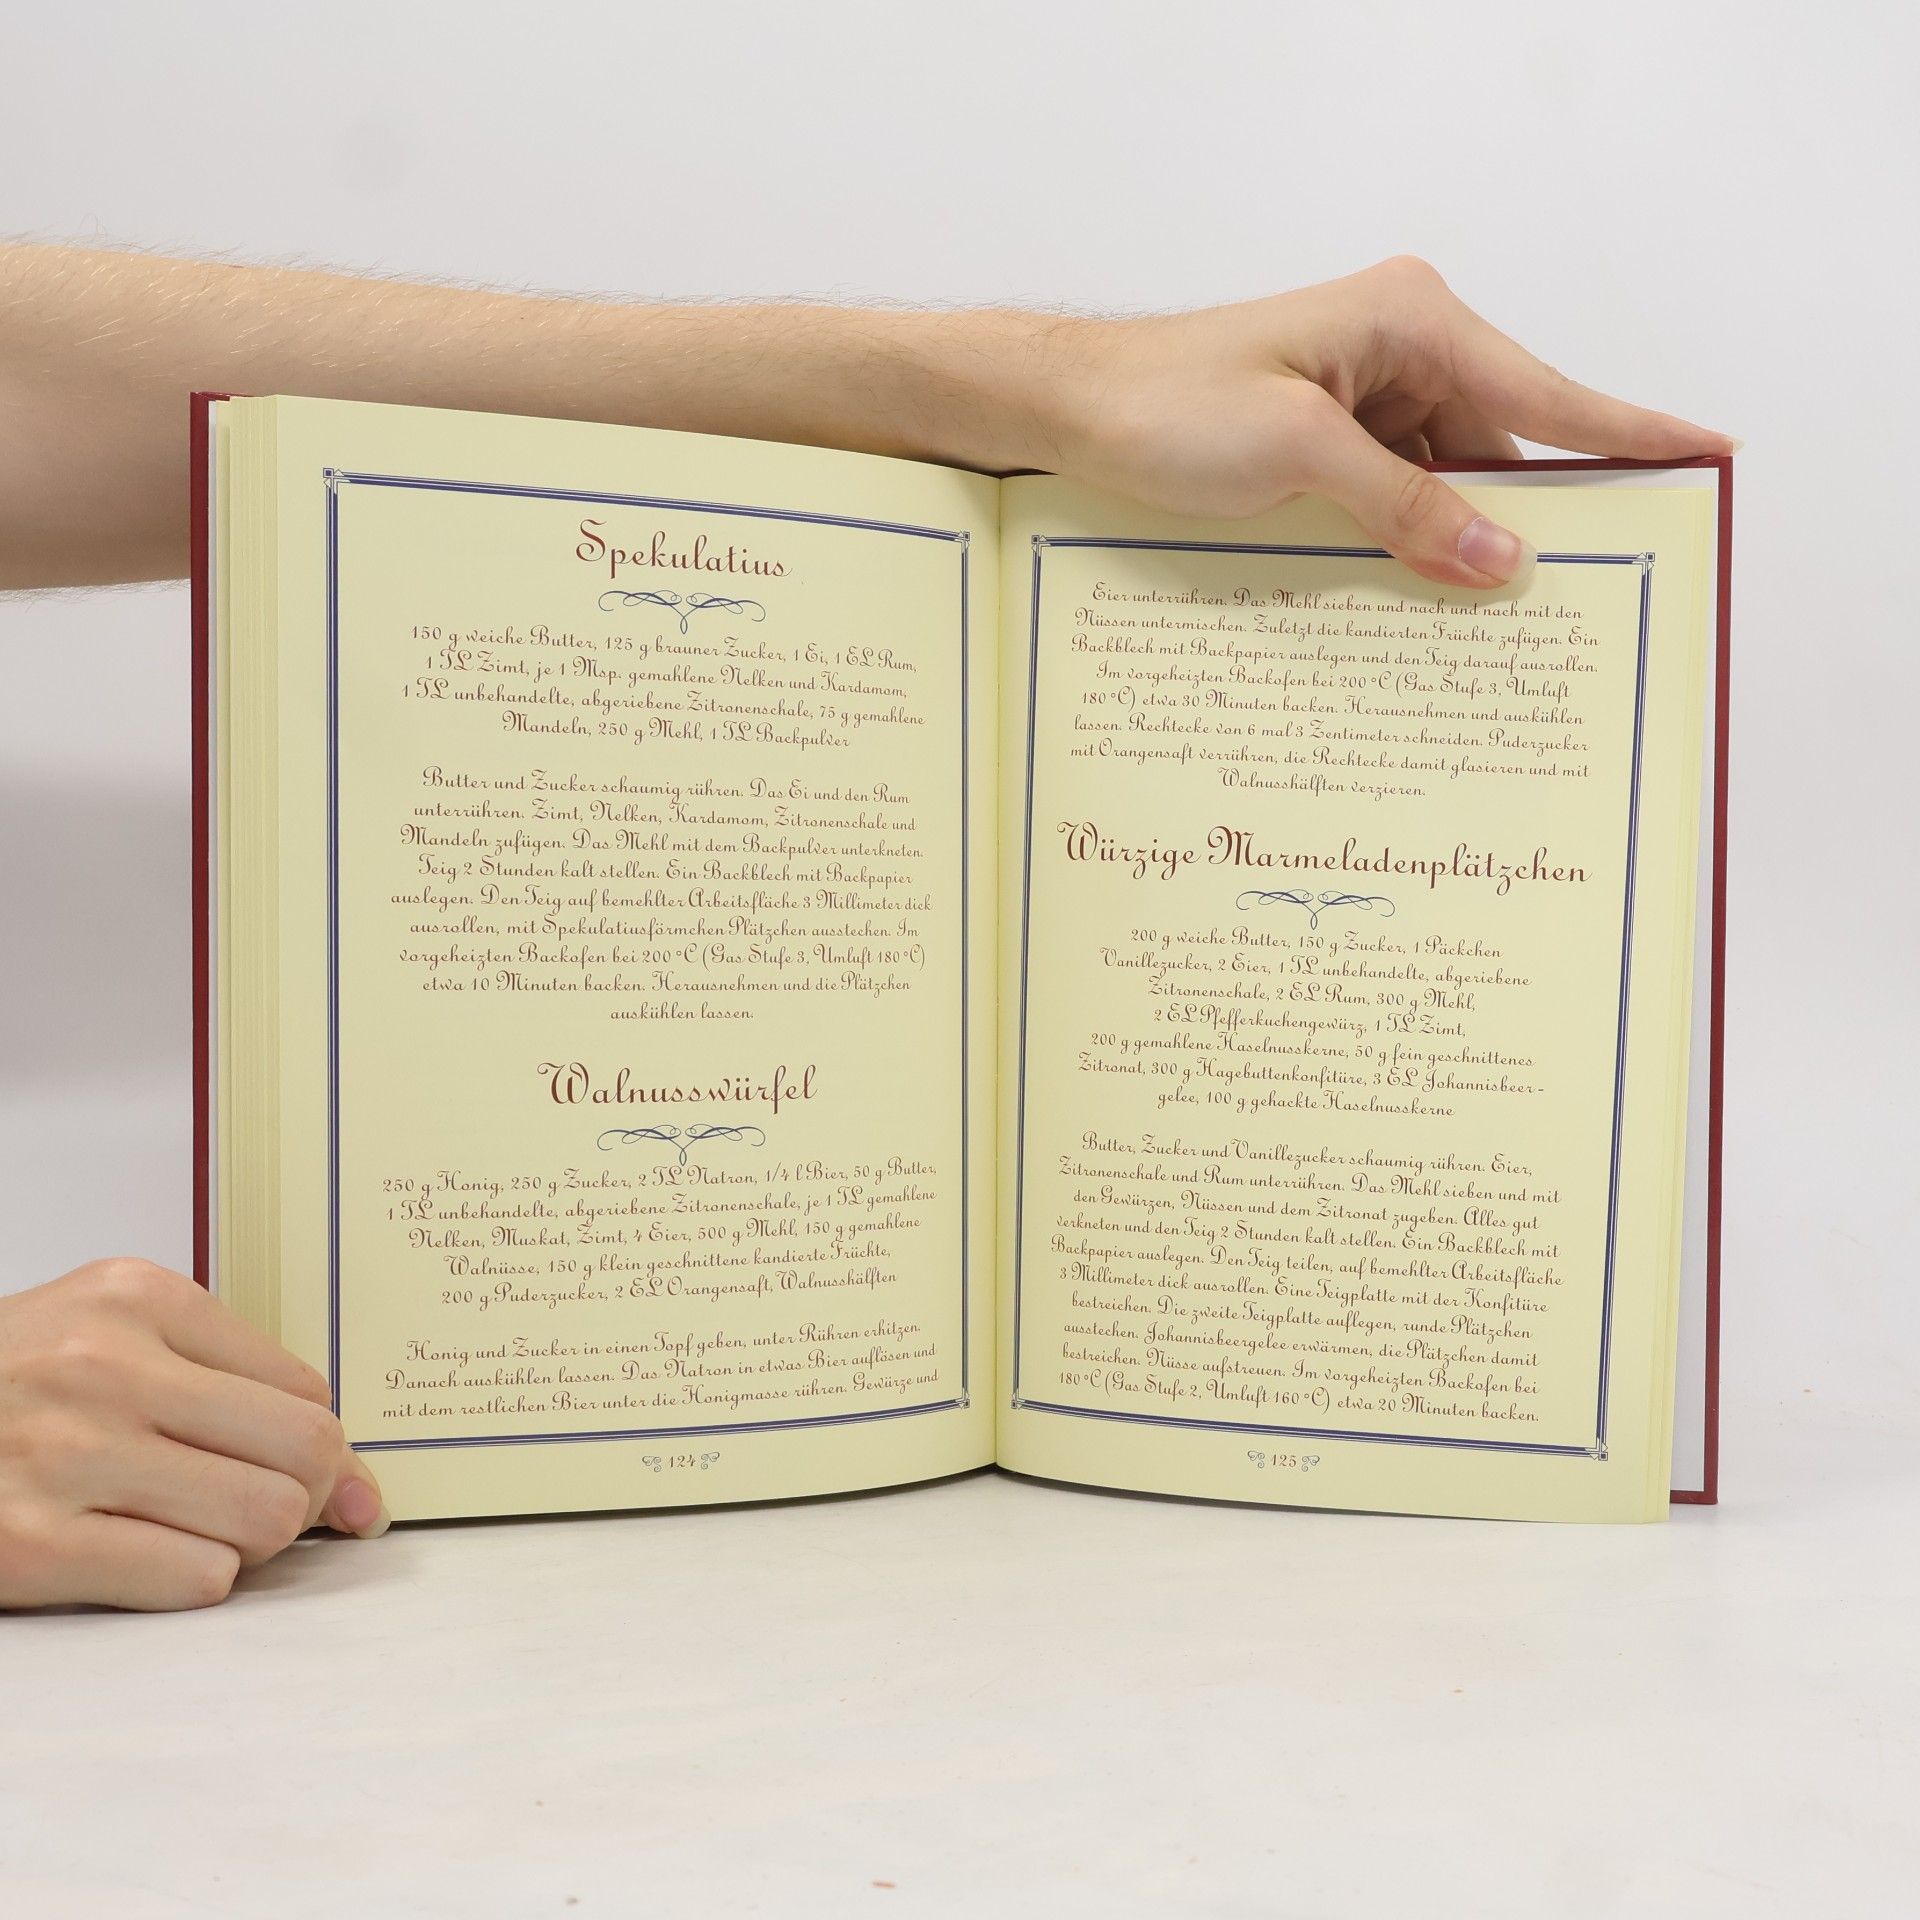 Spekulatius
150 g weiche Butter, 125 g brauner Zucker, 1 Ei, 1 EL Rum,
1 TL Zimt, je 1 Msp. gemahlene Nelken und Kardamom,
1 TL unbehandelte, abgeriebene Zitronenschale, 75 g gemahlene
Mandeln, 250 g Mehl, 1 TL Backpulver
Butter und Zucker schaumig rühren. Das Ei und den Rum
unterrühren. Zimt, Nelken, Kardamom, Zitronenschale und
Mandeln zufügen. Das Mehl mit dem Backpulver unterkneten.
Teig 2 Stunden kalt stellen. Ein Backblech mit Backpapier
auslegen. Den Teig auf bemehlter Arbeitsfläche 3 Millimeter dick
ausrollen, mit Spekulatiusförmchen Plätzchen ausstechen. Im
vorgeheizten Backofen bei 200 °C (Gas Stufe 3, Umluft 180 °C)
etwa 10 Minuten backen. Herausnehmen und die Plätzchen
auskühlen lassen.
Walnusswürfel
250 g Honig, 250 g Zucker, 2 TL Natron, 1/4 l Bier, 50 g Butter,
1 TL unbehandelte, abgeriebene Zitronenschale, je 1 TL gemahlene
Nelken, Muskat, Zimt, 4 Eier, 500 g Mehl, 150 g gemahlene
Walnüsse, 150 g klein geschnittene kandierte Früchte,
200 g Puderzucker, 2 EL Orangensaft, Walnusshälften
Honig und Zucker in einen Topf geben, unter Rühren erhitzen.
Danach auskühlen lassen. Das Natron in etwas Bier auflösen und
mit dem restlichen Bier unter die Honigmasse rühren. Gewürze und
124
Eier unterrühren. Das Mehl sieben und nach und nach mit den
Nüssen untermischen. Zuletzt die kandierten Früchte zufügen. Ein
Backblech mit Backpapier auslegen und den Teig darauf ausrollen.
Im vorgeheizten Backofen bei 200 °C (Gas Stufe 3, Umluft
180 °C) etwa 30 Minuten backen. Herausnehmen und auskühlen
lassen. Rechtecke von 6 mal 3 Zentimeter schneiden. Puderzucker
mit Orangensaft verrühren, die Rechtecke damit glasieren und mit
Walnusshälften verzieren.
Würzige Marmeladenplätzchen
200 g weiche Butter, 150 g Zucker, 1 Päckchen
Vanillezucker, 2 Eier, 1 TL unbehandelte, abgeriebene
Zitronenschale, 2 EL Rum, 300 g Mehl,
2 EL Pfefferkuchengewürz, 1 TL Zimt,
200 g gemahlene Haselnusskerne, 50 g fein geschnittenes
Zitronat, 300 g Hagebuttenkonfitüre, 3 EL Johannisbeer-
gelee, 100 g gehackte Haselnusskerne
Butter, Zucker und Vanillezucker schaumig rühren. Eier,
Zitronenschale und Rum unterrühren. Das Mehl sieben und mit
den Gewürzen, Nüssen und dem Zitronat zugeben. Alles gut
verkneten und den Teig 2 Stunden kalt stellen. Ein Backblech mit
Backpapier auslegen. Den Teig teilen, auf bemehlter Arbeitsfläche
3 Millimeter dick ausrollen. Eine Teigplatte mit der Konfitüre
bestreichen. Die zweite Teigplatte auflegen, runde Plätzchen
ausstechen. Johannisbeergelee erwärmen, die Plätzchen damit
bestreichen. Nüsse aufstreuen. Im vorgeheizten Backofen bei
180 °C (Gas Stufe 2, Umluft 160 °C) etwa 20 Minuten backen.
125